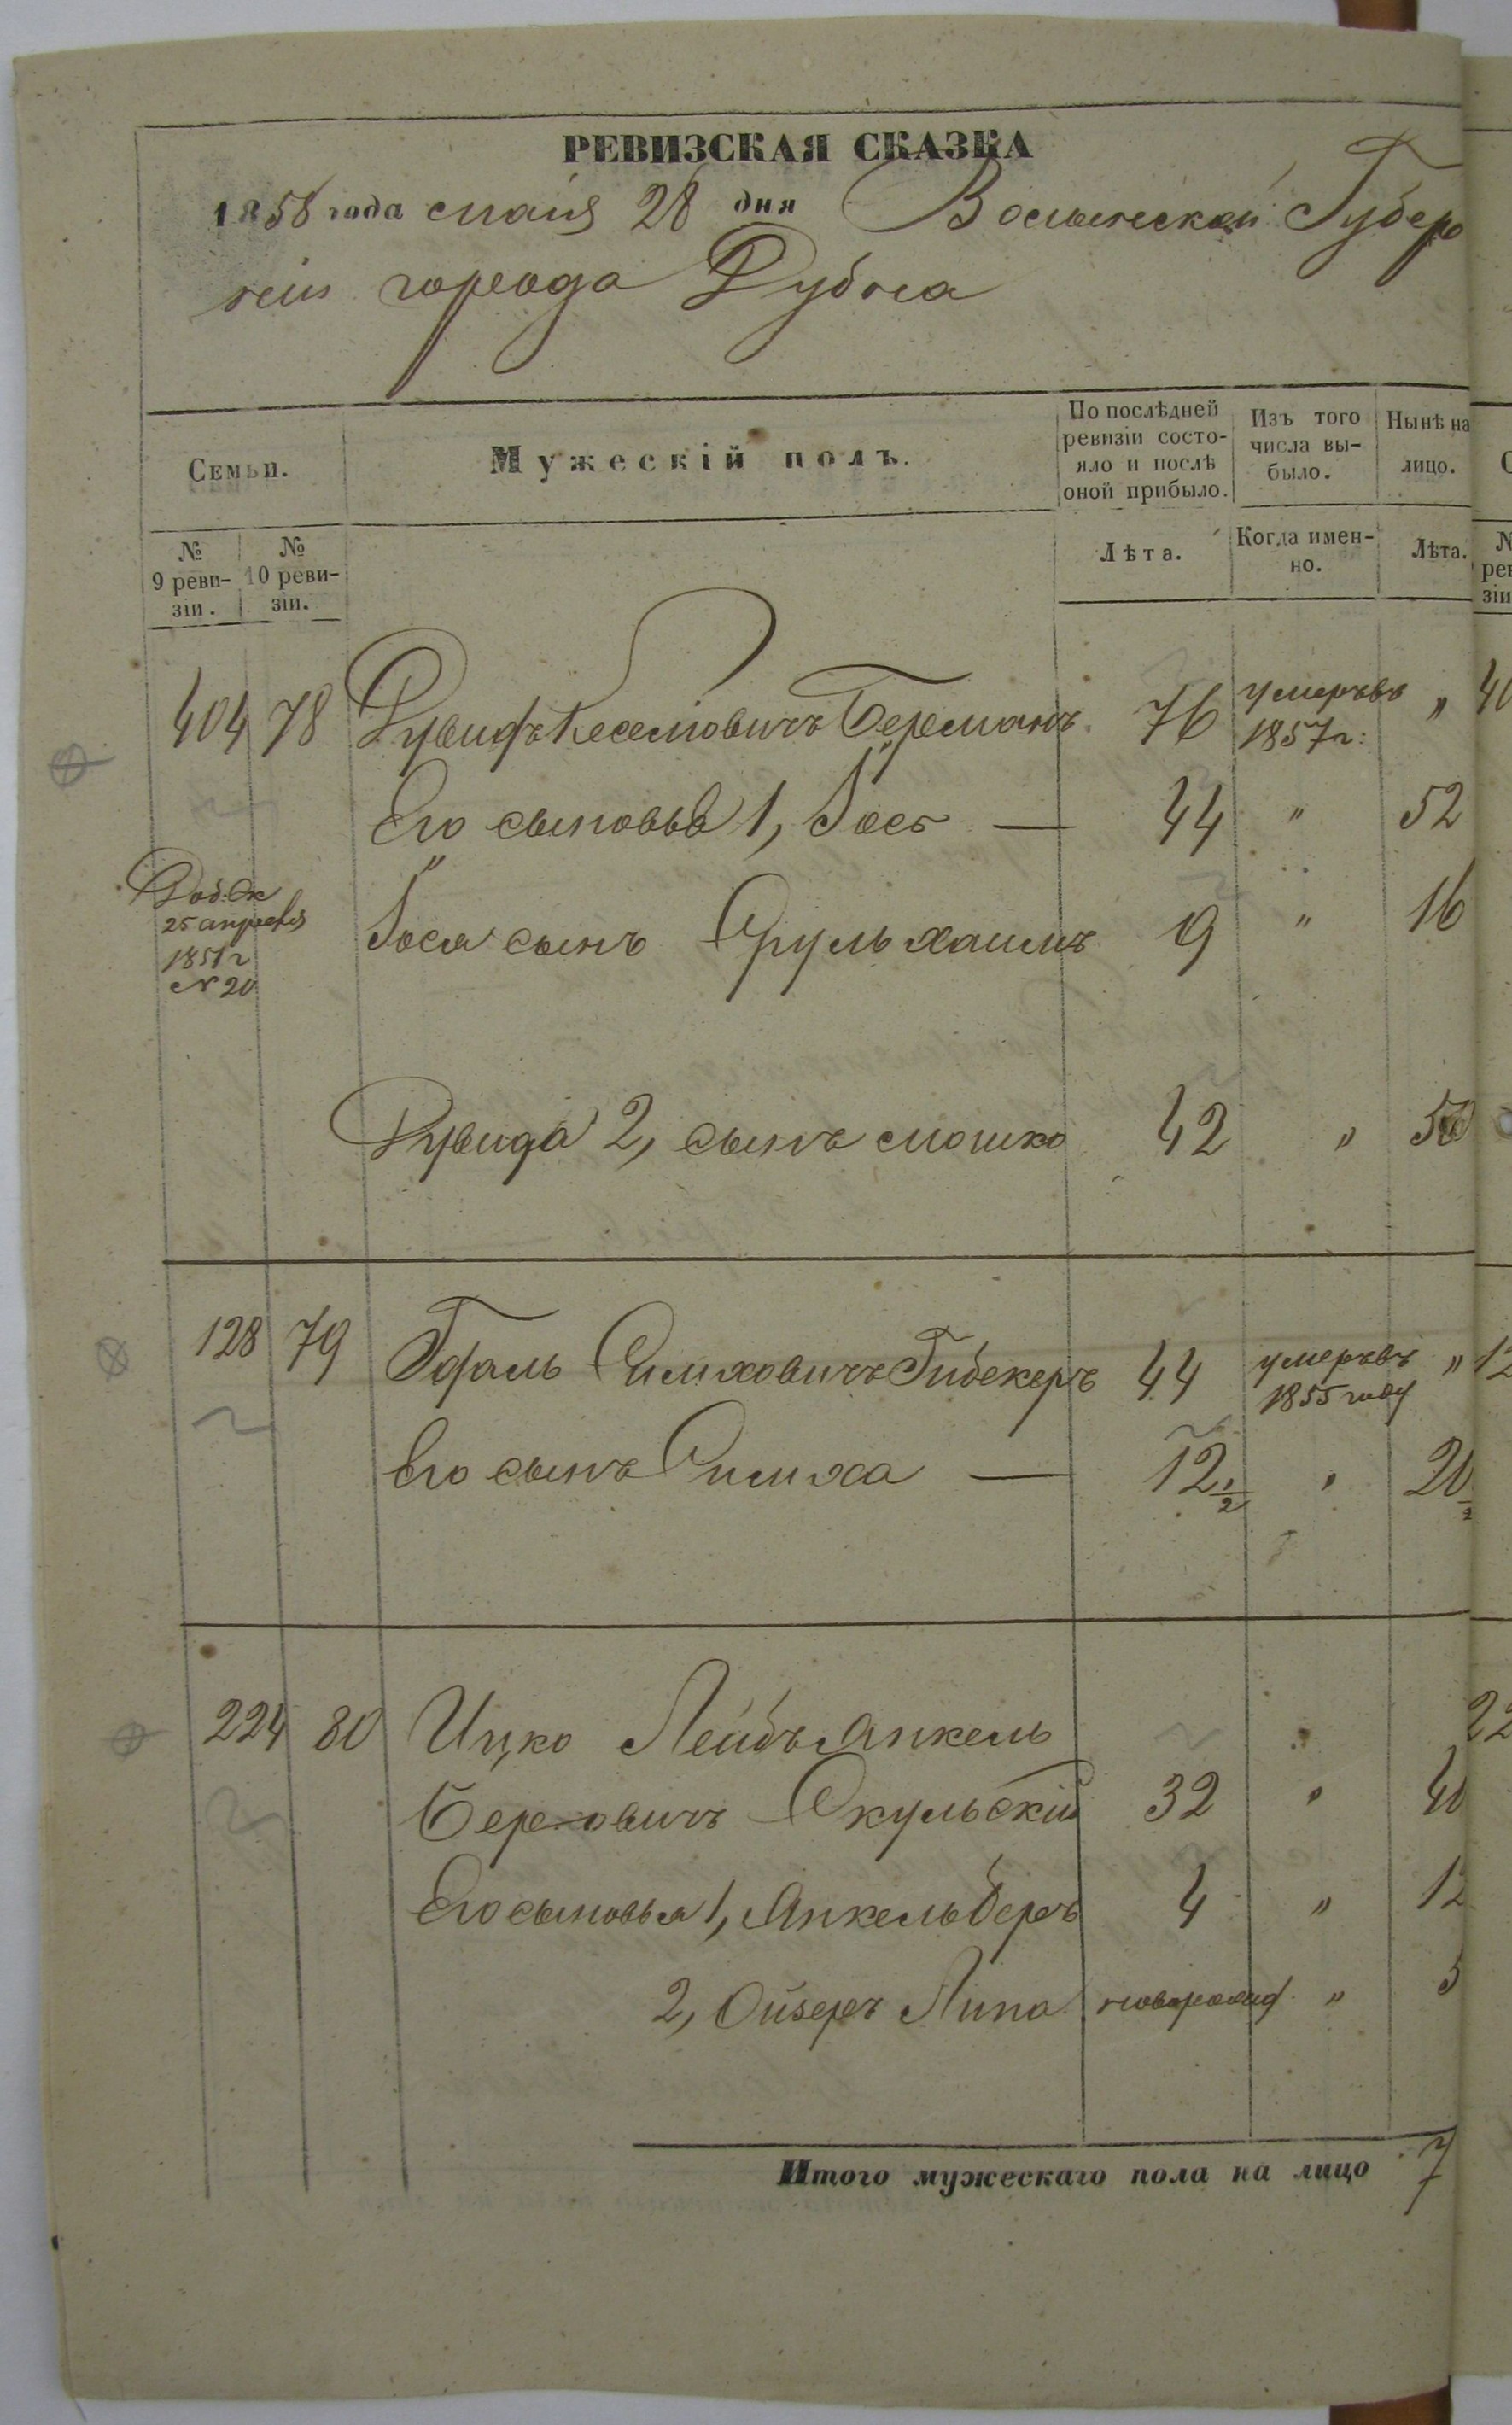 РЕВИЗСКАЯ СКАЗКА
1858 года маія 28 дня Волынской Губер
ніи города Дубна
Семьи.
Мужескій полъ.
По послѣдней ревизіи состо-яло и послѣ оной прибыло.
Изъ того числа вы-было.
Нынѣ на лицо.
№ 9 реви-зіи.
№ 10 реви-зіи.
Лѣта.
Когда имен-но.
Лѣта.
404 78 Берманъ 76 умеръ въ 1857 г: "
Его сыновья 1, Іось — 44 " 52
25 апреля
1851 г
№ 20
Іося сынъ Сруль Хаимъ 9 " 16
Дувида 2, сынъ Мошко 42 " 50
128 79 Симховичъ 44 умеръ въ 1855 году "
Его сынъ Симха — 12 1/2 " 20
224 80 Ицко Лейбъ Янкель
Беровичъ Окульскій 32 " 40
Его сыновья 1, Янкель Беръ 4 " 12
2, Ойзеръ Липа " 5
Итого мужескаго пола на лицо 7